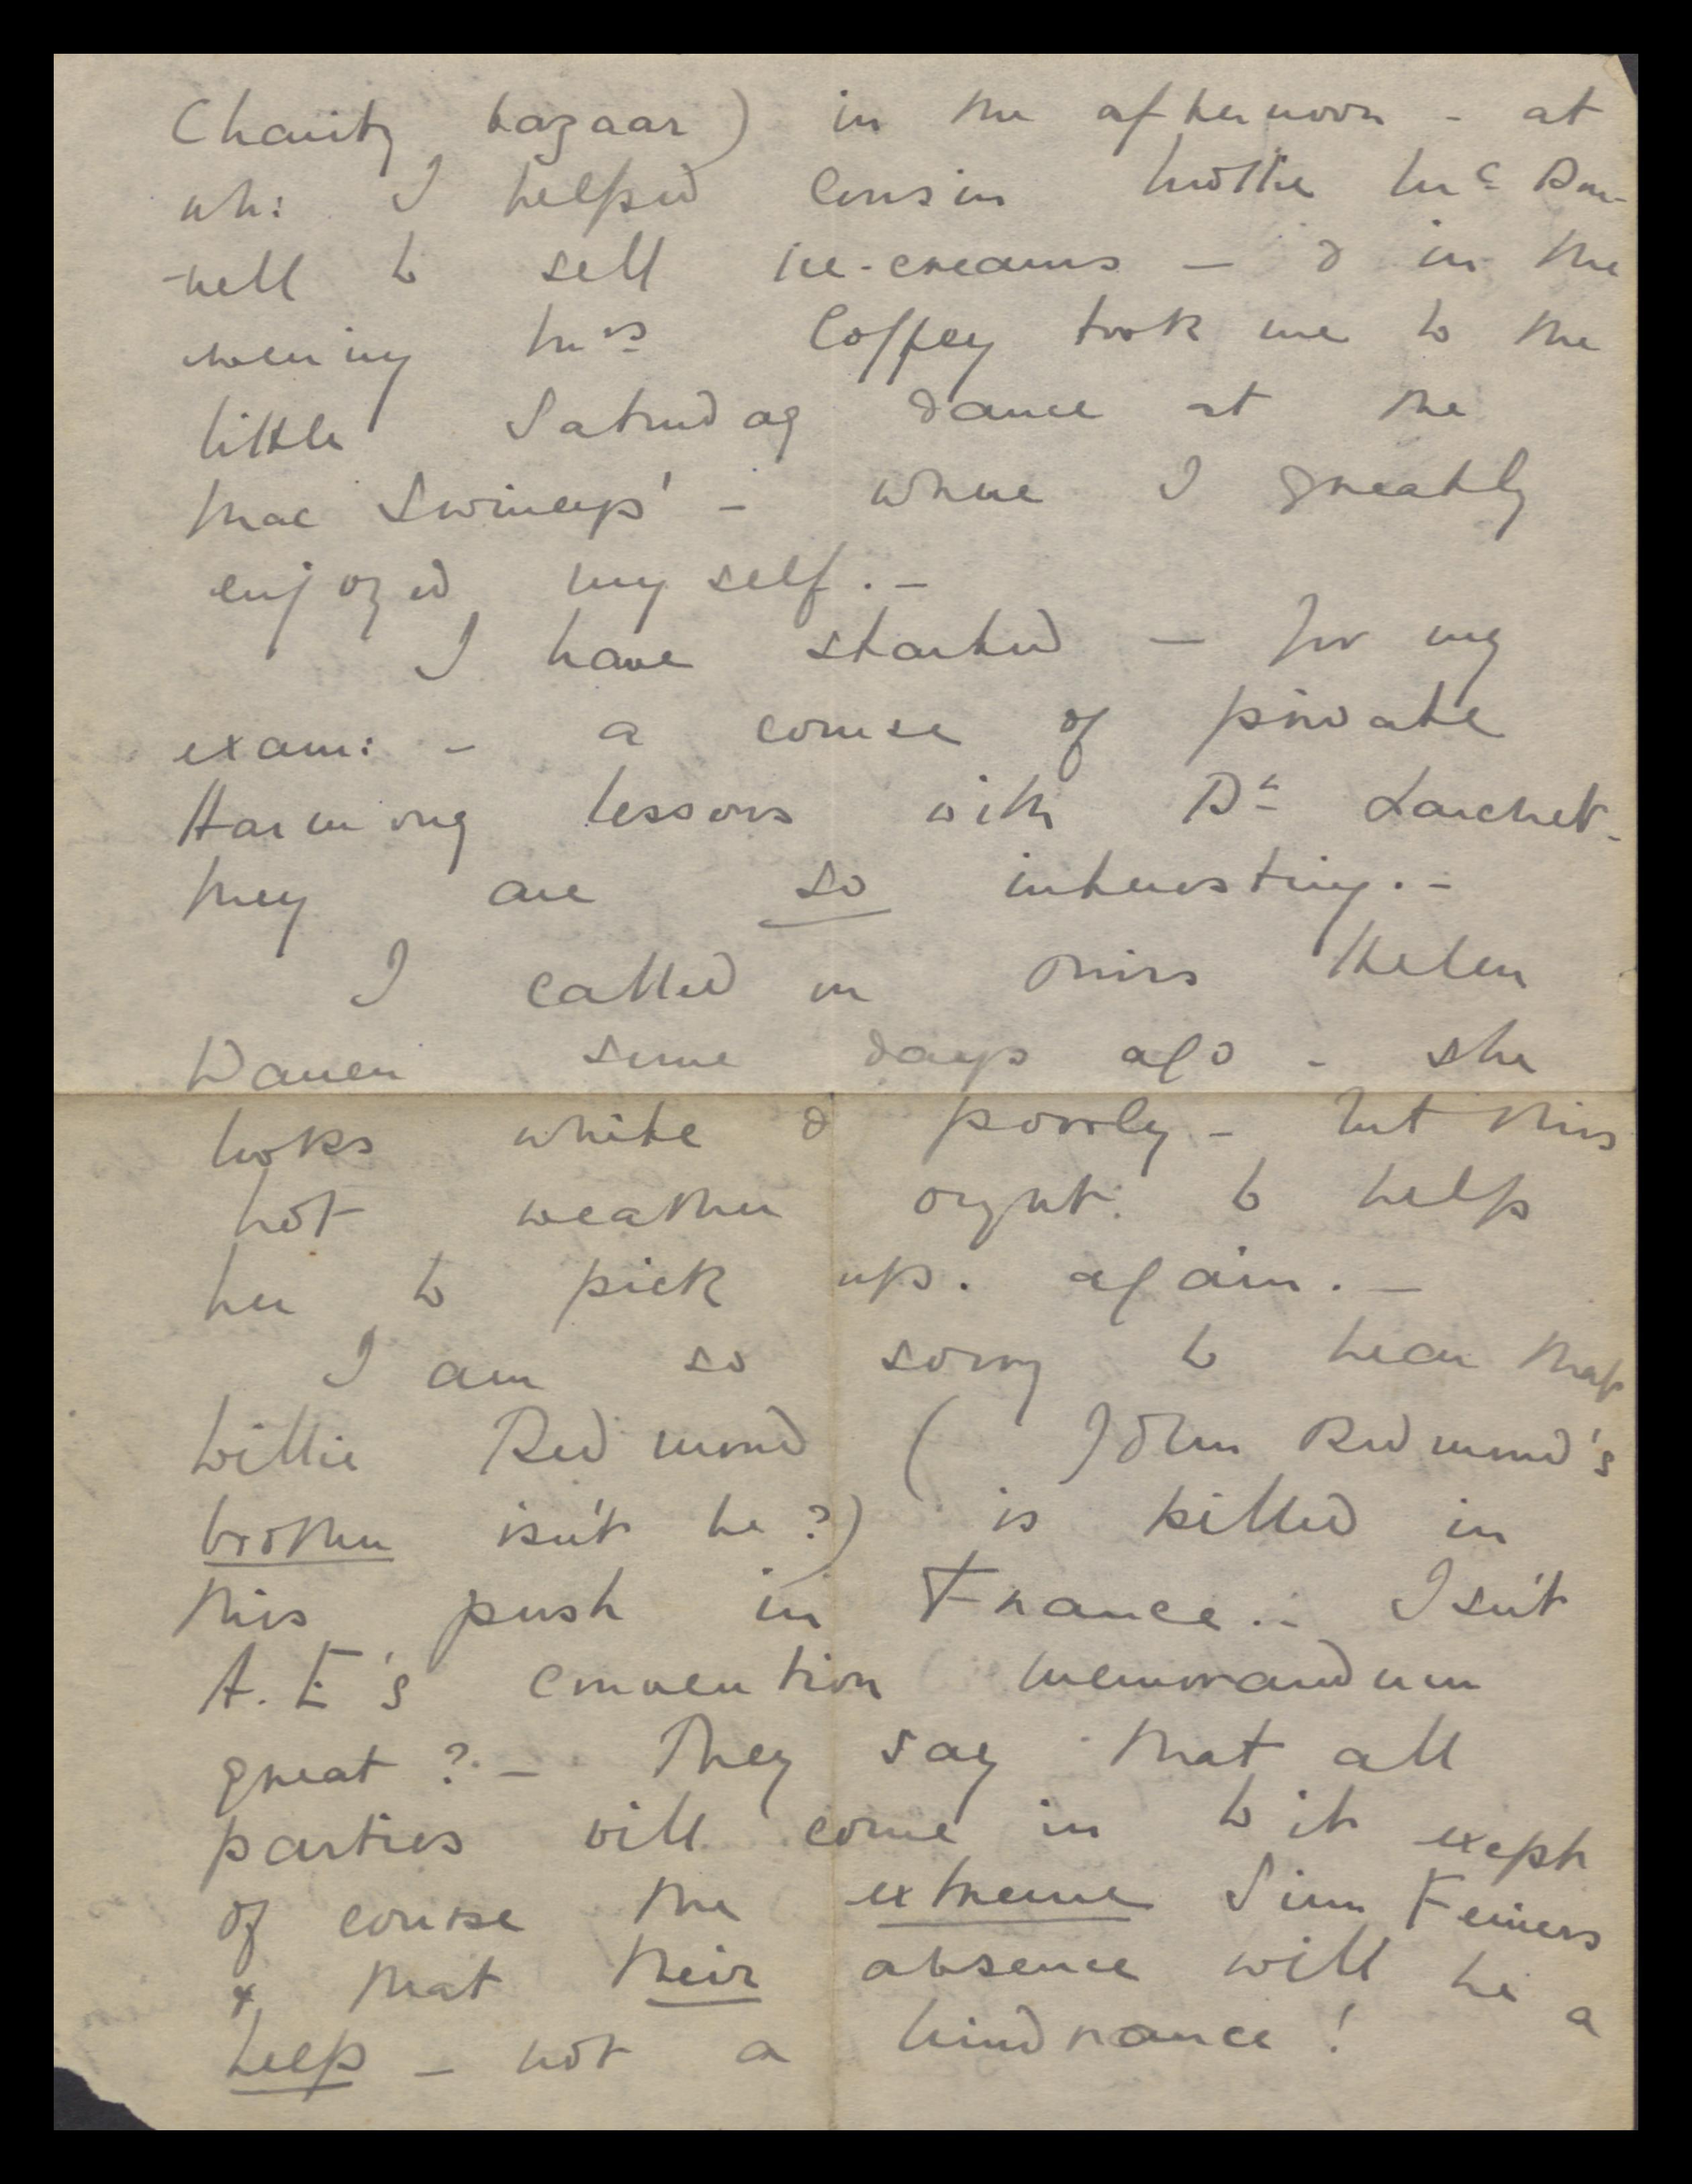 Charity bazaar) in the afternoon - at
wh: I helped Cousin Mottie McDon-
-nell to sell ice-creams — & in the
evening Mrs Coffey took me to the
little Saturday dance at the
Mac Swineys' - where I greatly
enjoyed myself. -
I have started — for my
exam: - a course of private
Harmony lessons with Dr Larchet -
They are so interesting. -
I called on Miss Helen
Warren some days ago - she
looks white & poorly - but this
hot weather ought to help
her to pick up again. —
I am so sorry to hear that
Willie Redmond ( John Redmond's
brother isn't he?) is killed in
this push in France. - Isn't
A. E's convention memorandum
great? - They say that all
parties will come in to it exept
of course the extreme Sinn Feiners
& that their absence will be a
help - not a hindrance!